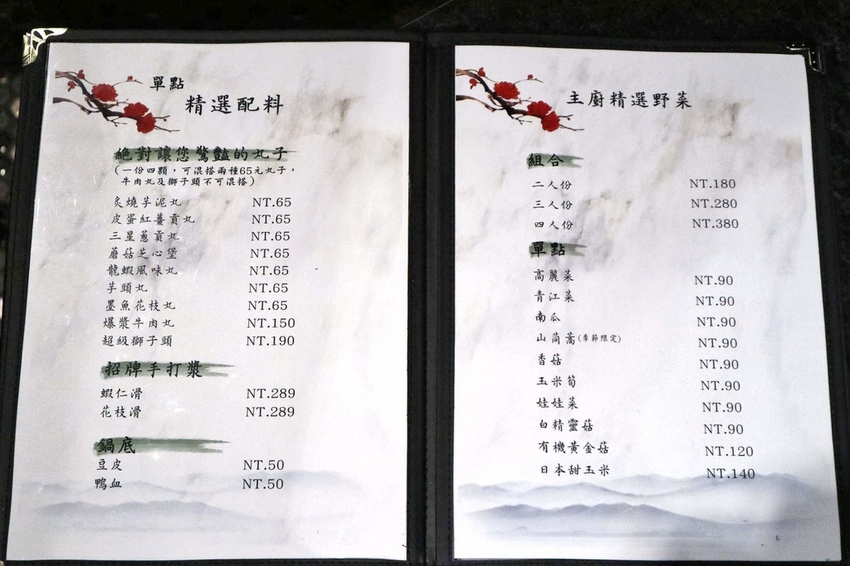 單點
精選配料
絕對讓您驚豔的丸子
(一份四顆，可混搭兩種65元丸子，
牛肉丸及獅子頭不可混搭)
炙燒芋泥丸 NT.65
皮蛋紅薑貢丸 NT.65
三星蔥貢丸 NT.65
蘑菇芝心堡 NT.65
龍蝦風味丸 NT.65
芋頭丸 NT.65
墨魚花枝丸 NT.65
爆漿牛肉丸 NT.150
超級獅子頭 NT.190
招牌手打漿
蝦仁滑 NT.289
花枝滑 NT.289
鍋底
豆皮 NT.50
鴨血 NT.50
主廚精選野菜
組合
二人份 NT.180
三人份 NT.280
四人份 NT.380
單點
高麗菜 NT.90
青江菜 NT.90
南瓜 NT.90
山茼蒿(季節限定) NT.90
香菇 NT.90
玉米筍 NT.90
娃娃菜 NT.90
白精靈菇 NT.90
有機黃金菇 NT.120
日本甜玉米 NT.140